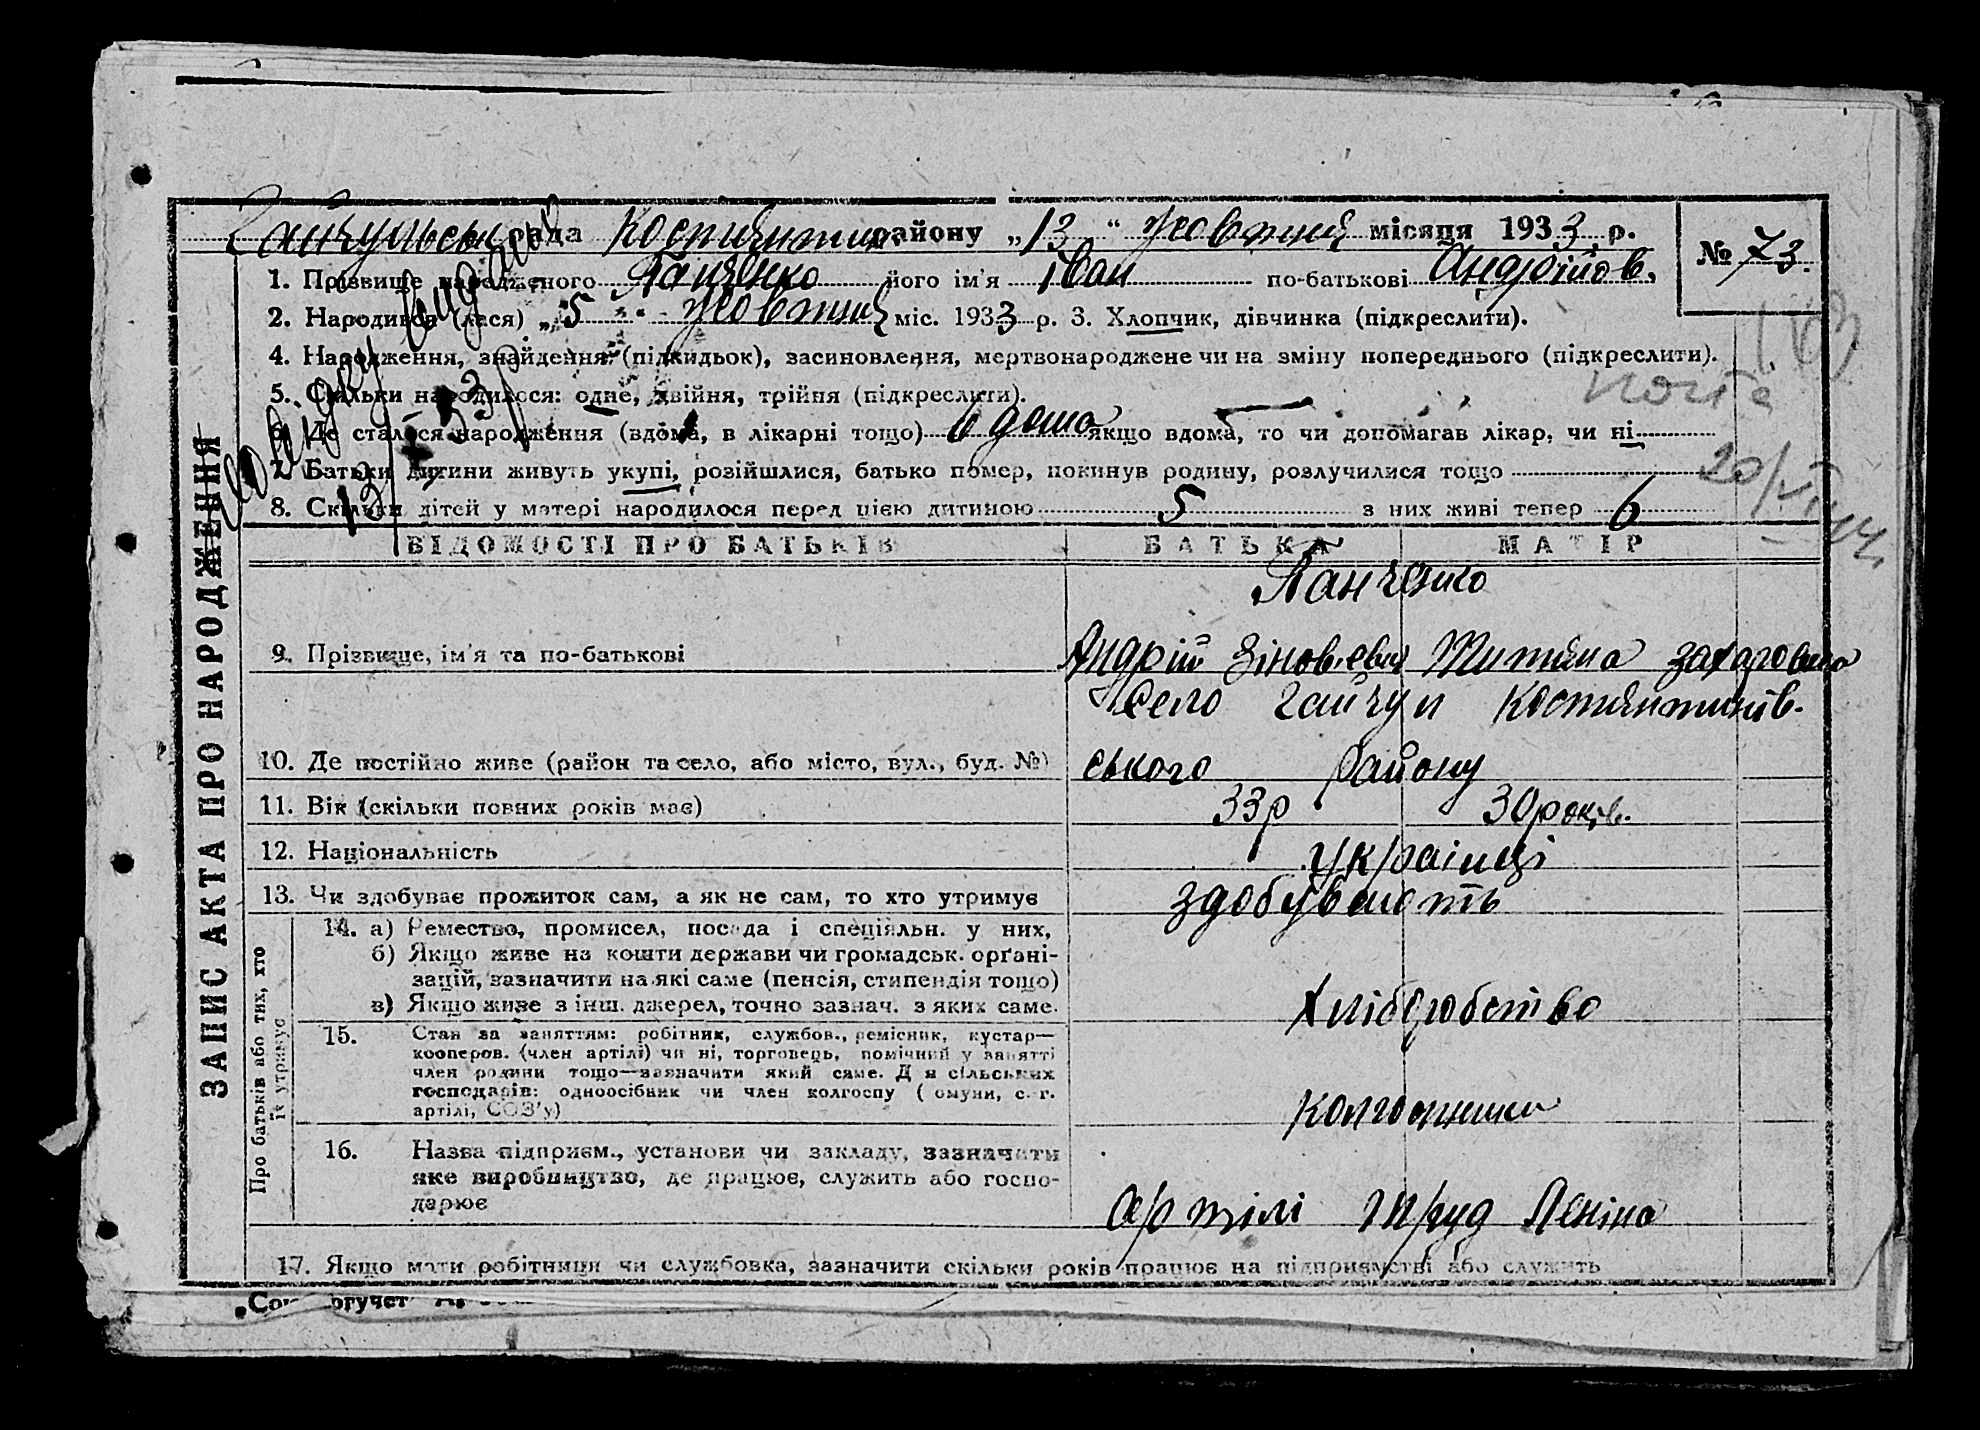 Гайчульська рада Костянтин. району „13“ Жовтня місяця 1933 р.
№ 73.
1. Прізвище народженого Панченко його ім'я Іван по-батькові Андрійов.
2. Народився (лася) „5“ Жовтня міс. 1933 р. 3. Хлопчик, дівчинка (підкреслити).
4. Народження, знайдення (підкидьок), засиновлення, мертвонароджене чи на зміну попереднього (підкреслити).
5. Скільки народилося: одне, двійня, трійня (підкреслити).
6. Де сталося народження (вдома, в лікарні тощо) в дома якщо вдома, то чи допомагав лікар, чи ні
7. Батьки дитини живуть укупі, розійшлися, батько помер, покинув родину, розлучилися тощо
8. Скільки дітей у матері народилося перед цією дитиною 5 з них живі тепер 6
видано
13/X-33р
копія
20/VII
ЗАПИС АКТА ПРО НАРОДЖЕННЯ
ВІДОМОСТІ ПРО БАТЬКІВ БАТЬКА МАТІР
Панченко
9. Прізвище, ім'я та по-батькові Андрій Зіновєвич Титяна Захаровна
село Гайчул Костянтинів-
10. Де постійно живе (район та село, або місто, вул., буд. №) ського району
11. Вік (скільки повних років має) 33р 30 років.
12. Національність Українці
13. Чи здобуває прожиток сам, а як не сам, то хто утримує здобувають
Про батьків або тих, хто
їх утримує
14. а) Ремество, промисел, посада і спеціяльн. у них,
б) Якщо живе на кошти держави чи громадськ. орґані-
зацій, зазначити на які саме (пенсія, стипендія тощо)
в) Якщо живе з інш. джерел, точно зазнач. з яких саме. Хліборобство
15. Стан за заняттям: робітник, службов., ремісник, кустар—
кооперов. (член артілі) чи ні, торговець, помічний у занятті
член родини тощо—зазначити який саме. Для сільських
господарів: одноосібник чи член колгоспу (комуни, с.-г.
артілі, СОЗ'у) колгоспники
16. Назва підприєм., установи чи закладу, зазначити
яке виробництво, де працює, служить або госпо-
дарює артілі труд Леніна
17. Якщо мати робітниця чи службовка, зазначити скільки років працює на підприємстві або служить